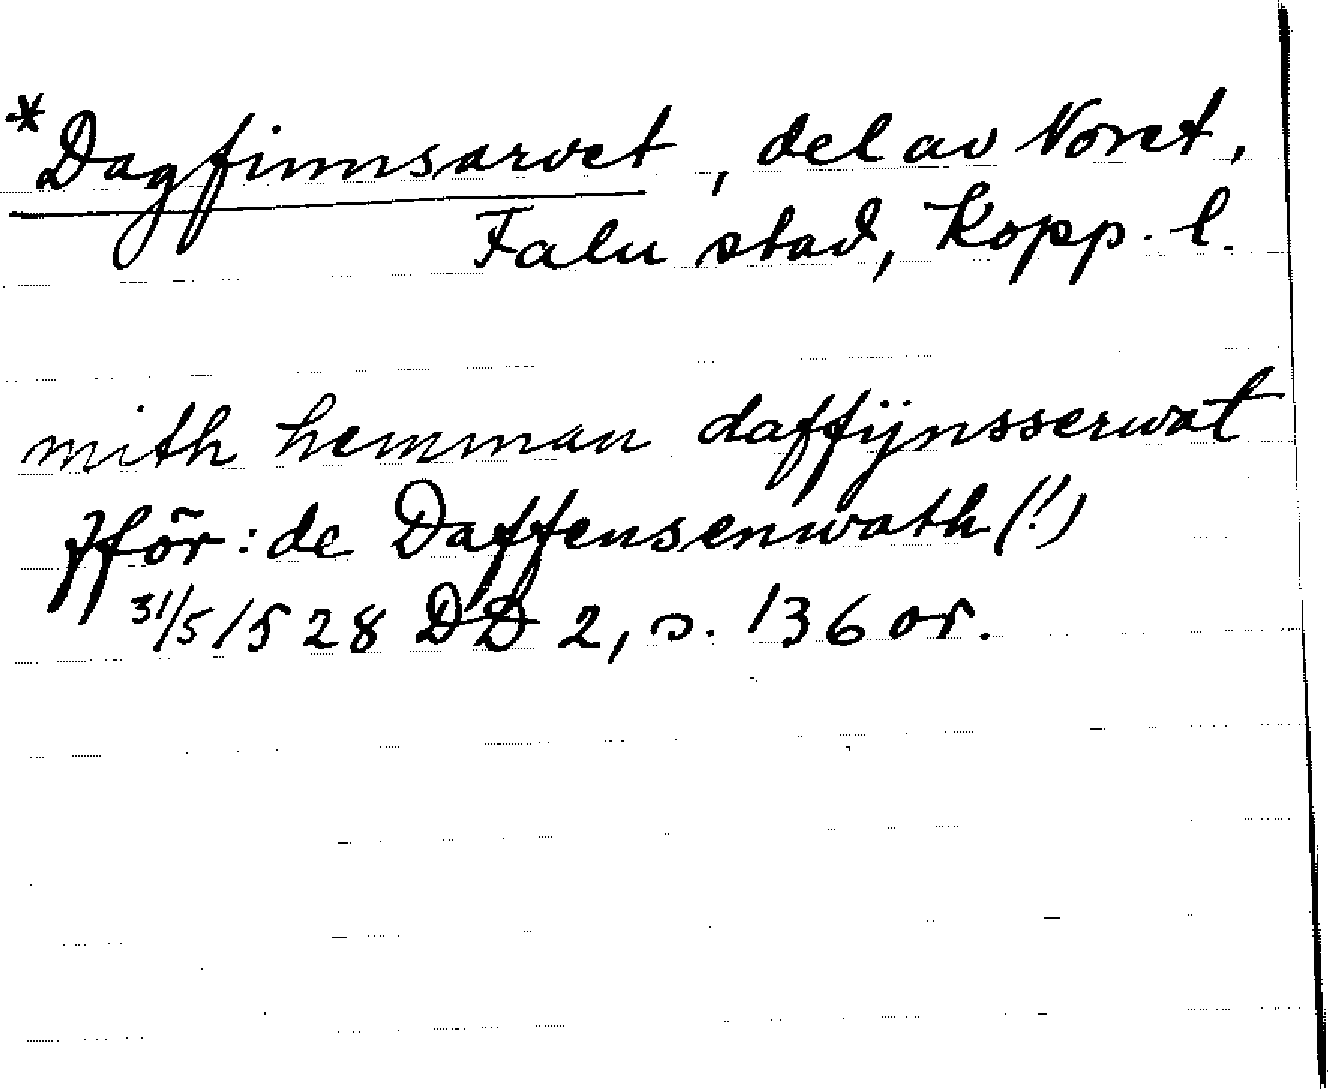 *Dagfinnsarvet, del av Noret,
Falu stad, Kopp. l.
mith hemman daffijnsserwat
fför: de Daffensenwath (!)
31/5 1528 DD 2, s. 136 or.